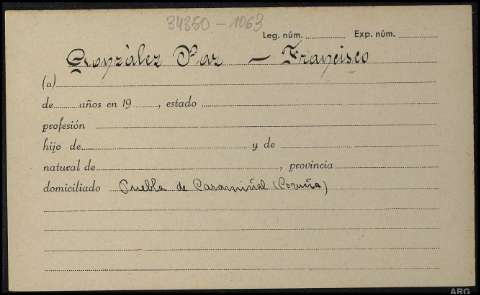 34850-1063
Leg. núm. Exp. núm.
González Paz - Francisco
(a)
de años en 19 , estado
profesión
hijo de y de
natural de , provincia
domiciliado Puebla de Caramiñal (Coruña)
ARG